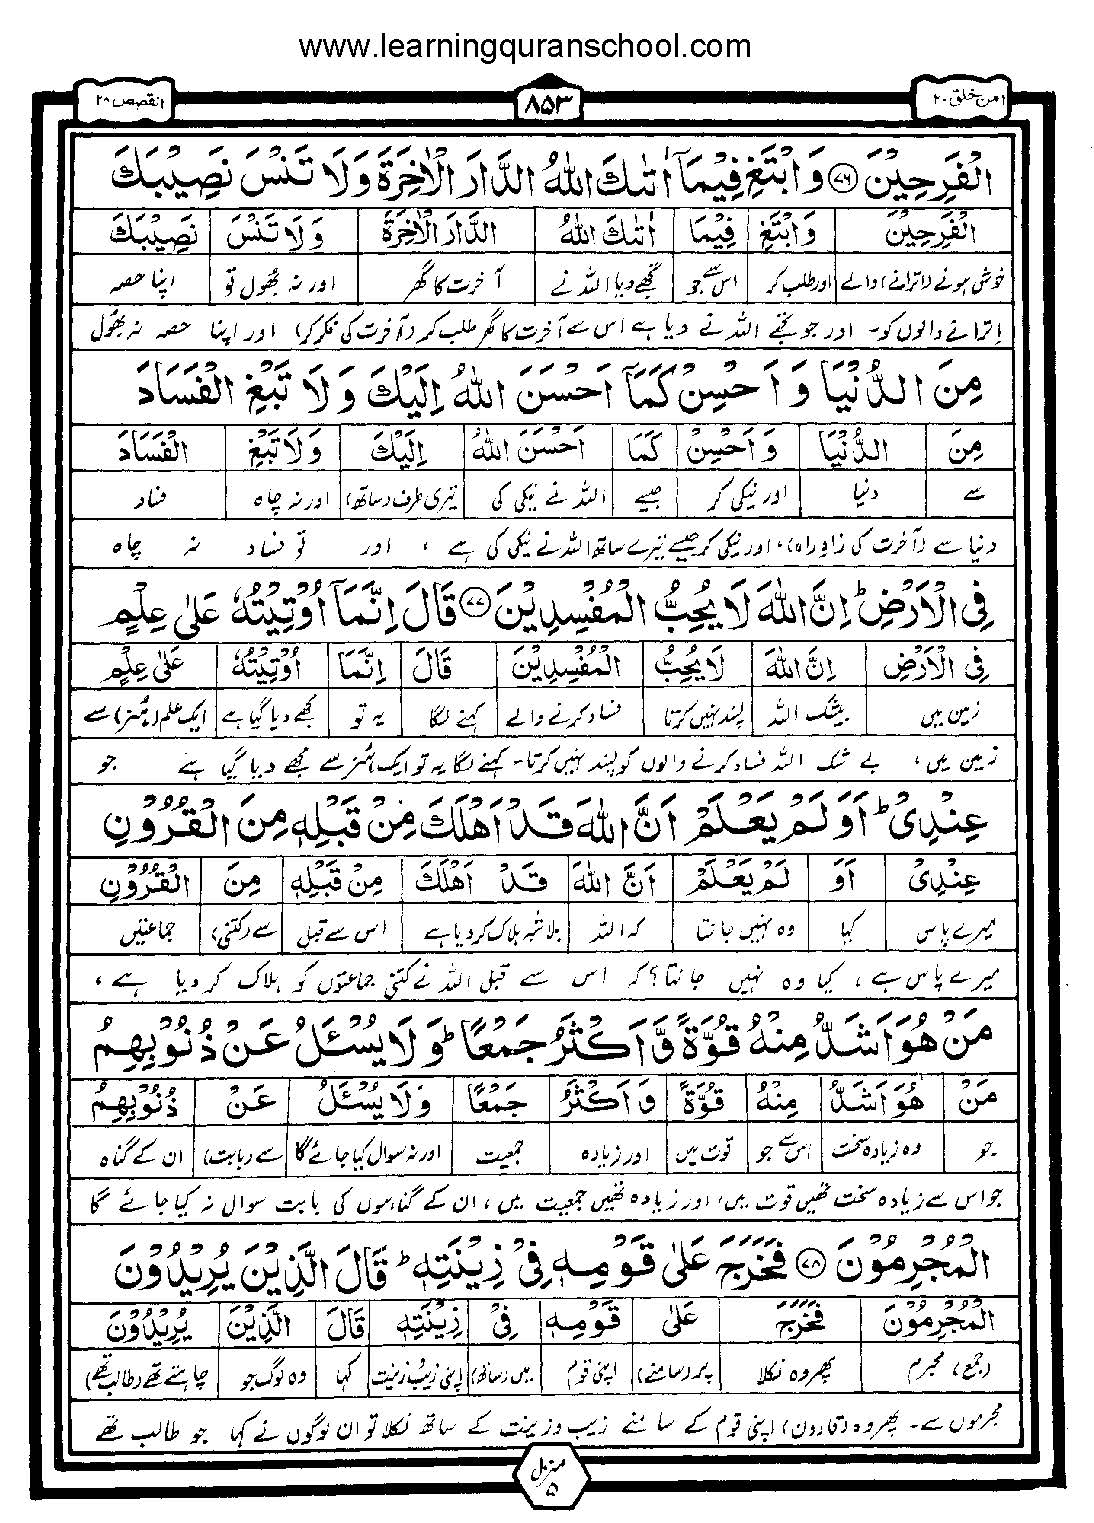 www.learningquranschool.com
امن خلق ۲۰
۸۵۳
القصص ۲۸
الْفَرِحِيْنَ ﴿۷۶﴾ وَابْتَغِ فِيْمَاۤ اٰتٰىكَ اللّٰهُ الدَّارَ الْاٰخِرَةَ وَلَا تَنْسَ نَصِيْبَكَ
الْفَرِحِيْنَ وَابْتَغِ فِيْمَا اٰتٰىكَ اللّٰهُ الدَّارَ الْاٰخِرَةَ وَلَا تَنْسَ نَصِيْبَكَ
خوش ہونے (اترانے) والے اور طلب کر اس سے جو تجھے دیا اللہ نے آخرت کا گھر اور نہ بھول تو اپنا حصہ
اترانے والوں کو۔ اور جو تجھے اللہ نے دیا ہے اس سے آخرت کا گھر طلب کر (آخرت کی فکر کر) اور اپنا حصہ نہ بھول
مِنَ الدُّنْيَا وَ اَحْسِنْ كَمَاۤ اَحْسَنَ اللّٰهُ اِلَيْكَ وَ لَا تَبْغِ الْفَسَادَ
مِنَ الدُّنْيَا وَ اَحْسِنْ كَمَا اَحْسَنَ اللّٰهُ اِلَيْكَ وَلَا تَبْغِ الْفَسَادَ
سے دنیا اور نیکی کر جیسے اللہ نے نیکی کی تیری طرف (ساتھ) اور نہ چاہ فساد
دنیا سے (آخرت کی زادِ راہ)، اور نیکی کر جیسے تیرے ساتھ اللہ نے نیکی کی ہے ، اور تو فساد نہ چاہ
فِي الْاَرْضِ ؕ اِنَّ اللّٰهَ لَا يُحِبُّ الْمُفْسِدِيْنَ ﴿۷۷﴾ قَالَ اِنَّمَاۤ اُوْتِيْتُهٗ عَلٰى عِلْمٍ
فِي الْاَرْضِ اِنَّ اللّٰهَ لَا يُحِبُّ الْمُفْسِدِيْنَ قَالَ اِنَّمَا اُوْتِيْتُهٗ عَلٰى عِلْمٍ
زمین میں بیشک اللہ پسند نہیں کرتا فساد کرنے والے کہنے لگا یہ تو مجھے دیا گیا ہے ایک علم (ہنر) سے
زمین میں، بے شک اللہ فساد کرنے والوں کو پسند نہیں کرتا۔ کہنے لگا یہ تو ایک ہنر سے مجھے دیا گیا ہے جو
عِنْدِيْ ؕ اَوَلَمْ يَعْلَمْ اَنَّ اللّٰهَ قَدْ اَهْلَكَ مِنْ قَبْلِهٖ مِنَ الْقُرُوْنِ
عِنْدِيْ اَوَ لَمْ يَعْلَمْ اَنَّ اللّٰهَ قَدْ اَهْلَكَ مِنْ قَبْلِهٖ مِنَ الْقُرُوْنِ
میرے پاس کیا وہ نہیں جانتا کہ اللہ بلاشبہ ہلاک کر دیا ہے اس سے قبل سے (کتنی) جماعتیں
میرے پاس ہے ، کیا وہ نہیں جانتا؟ کہ اس سے قبل اللہ نے کتنی جماعتوں کو ہلاک کر دیا ہے ،
مَنْ هُوَ اَشَدُّ مِنْهُ قُوَّةً وَّ اَكْثَرُ جَمْعًا ؕ وَلَا يُسْئَلُ عَنْ ذُنُوْبِهِمُ
مَنْ هُوَ اَشَدُّ مِنْهُ قُوَّةً وَ اَكْثَرُ جَمْعًا وَلَا يُسْئَلُ عَنْ ذُنُوْبِهِمُ
جو وہ زیادہ سخت اس سے جو قوت میں اور زیادہ جمعیت اور نہ سوال کیا جائے گا سے (بابت) ان کے گناہ
جو اس سے زیادہ سخت تھیں قوت میں، اور زیادہ تھیں جمعیت میں، ان کے گناہوں کی بابت سوال نہ کیا جائے گا
الْمُجْرِمُوْنَ ﴿۷۸﴾ فَخَرَجَ عَلٰى قَوْمِهٖ فِيْ زِيْنَتِهٖ ؕ قَالَ الَّذِيْنَ يُرِيْدُوْنَ
الْمُجْرِمُوْنَ فَخَرَجَ عَلٰى قَوْمِهٖ فِيْ زِيْنَتِهٖ قَالَ الَّذِيْنَ يُرِيْدُوْنَ
(جمع) مجرم پھر وہ نکلا پر (سامنے) اپنی قوم میں (ساتھ) اپنی زیب و زینت کہا وہ لوگ جو چاہتے تھے (طالب تھے)
مجرموں سے۔ پھر وہ (قارون) اپنی قوم کے سامنے زیب و زینت کے ساتھ نکلا تو ان لوگوں نے کہا جو طالب تھے
منزل ۵